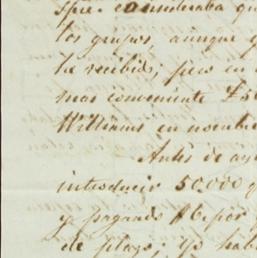 spre. consideraba qu
los grupos, aunque q
he recibido; pero en
mas conveniente £50
Williams en nombre
Antes de ay
introducir 50.000 q
ya pagando $6 por
de plazo; Yo hab